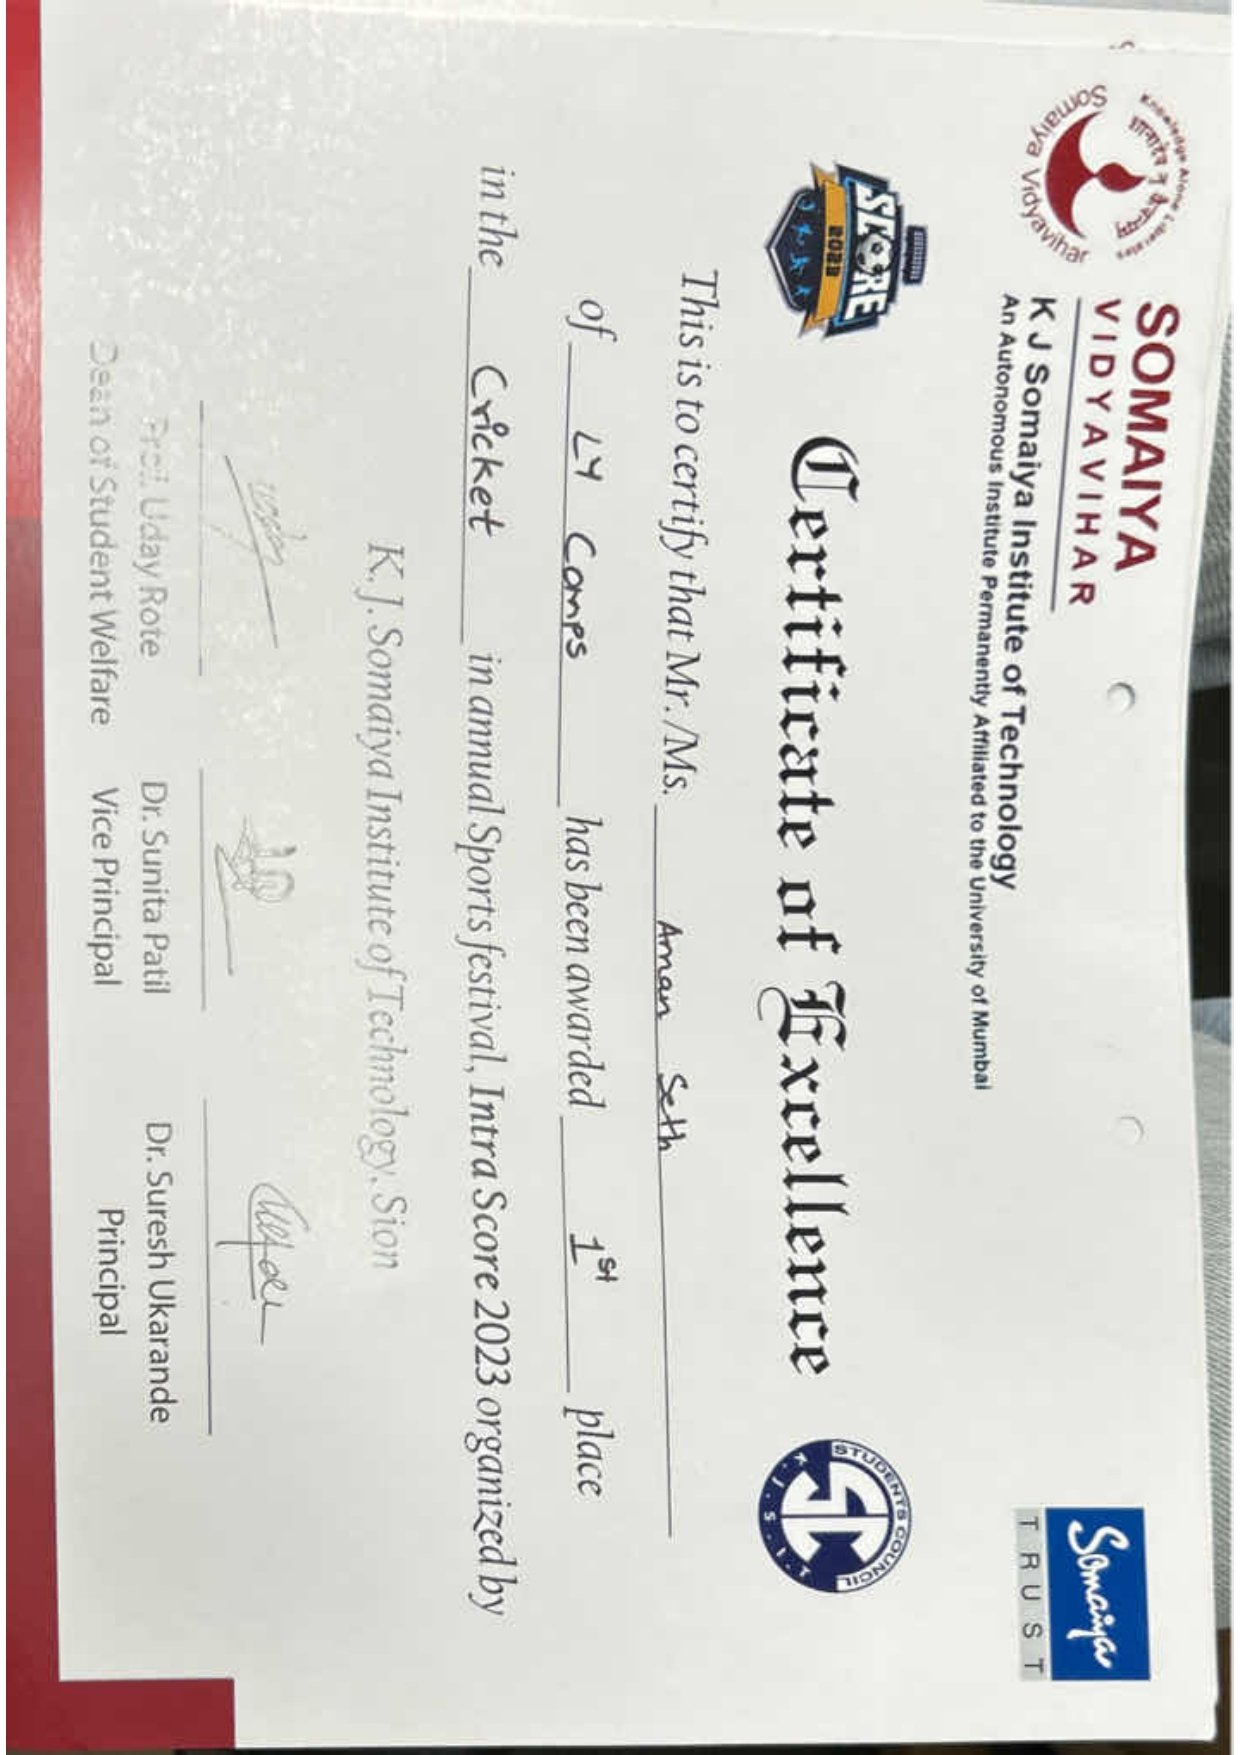 Knowledge Alone Liberates
ज्ञानादेव तु कैवल्यम्
Somaiya Vidyavihar
SOMAIYA
VIDYAVIHAR
K J Somaiya Institute of Technology
An Autonomous Institute Permanently Affiliated to the University of Mumbai
Somaiya
TRUST
SCORE
2023
Certificate of Excellence
STUDENTS COUNCIL
SC
K.J.S.I.T
This is to certify that Mr./Ms. Aman Seth
of LY Comps has been awarded 1st place
in the Cricket in annual Sports festival, Intra Score 2023 organized by
K. J. Somaiya Institute of Technology, Sion
Prof. Uday Rote
Dean of Student Welfare
Dr. Sunita Patil
Vice Principal
Dr. Suresh Ukarande
Principal